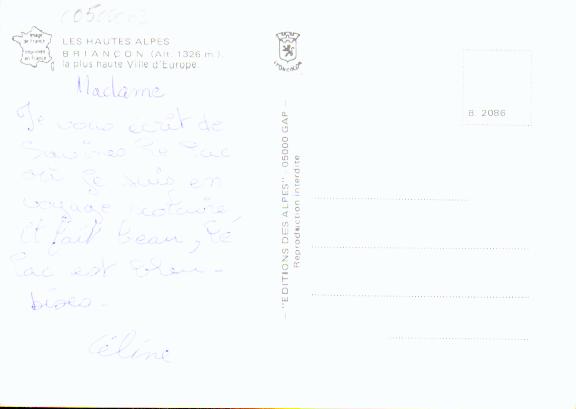 0500003
image de France
imprimée en France
LES HAUTES ALPES
BRIANÇON (Alt. 1326 m.)
la plus haute Ville d'Europe.
Madame
Je vous ecrit de
Savines le Lac
où je suis en
voyage scolaire
il fait beau, le
lac est bleu -
bises -
Céline
LYONCOLOR
"EDITIONS DES ALPES" - 05000 GAP -
Reproduction interdite
B. 2086